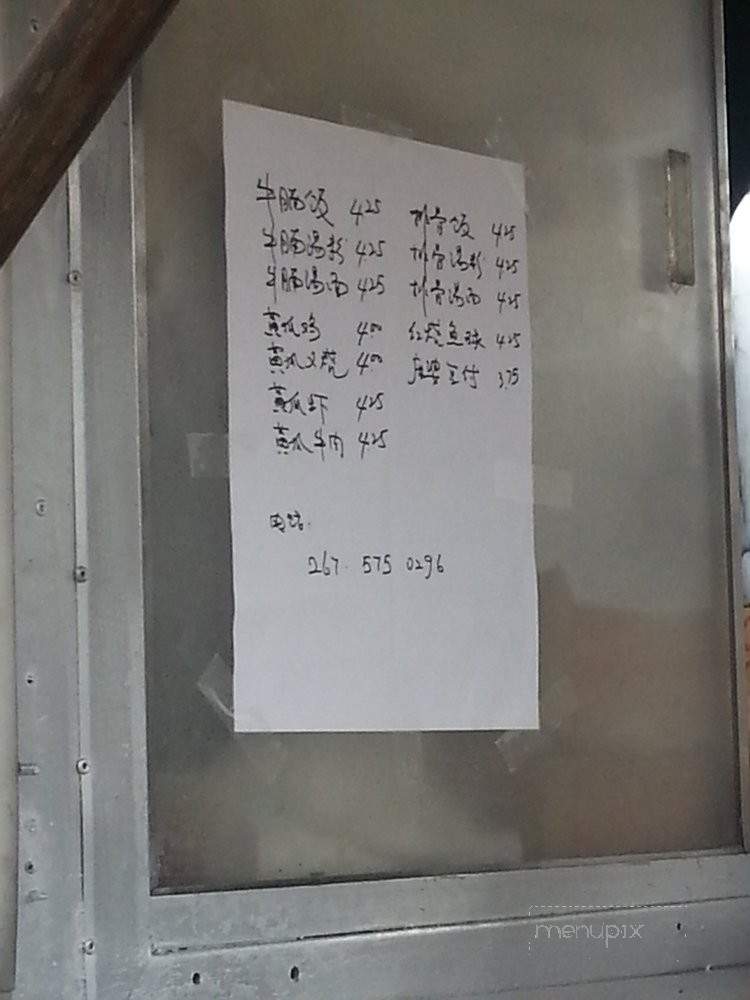 牛腩饭 425
牛腩汤粉 425
牛腩汤面 425
黄瓜鸡 4.00
黄瓜叉烧 4.00
黄瓜虾 425
黄瓜牛肉 425
排骨饭 425
排骨汤粉 425
排骨汤面 425
红烧鱼球 425
3.75
电话.
267. 575 0296
menupix